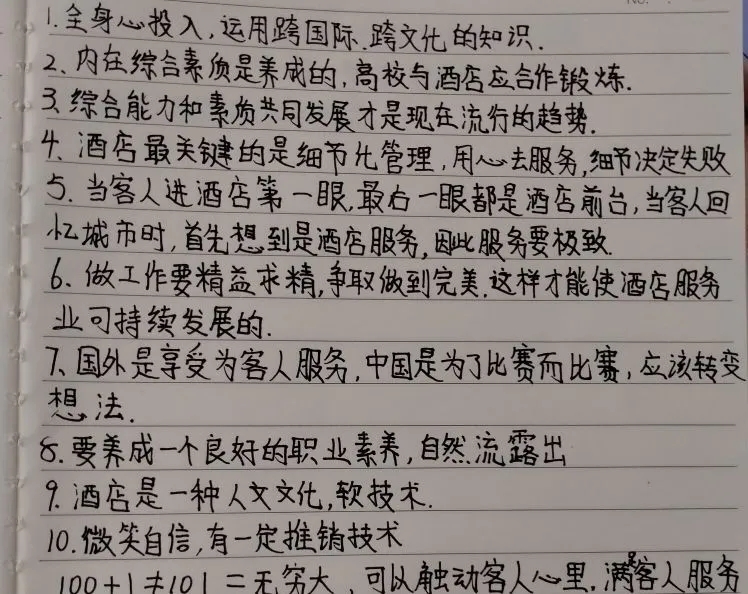 1.全身心投入,运用跨国际、跨文化的知识.
2、内在综合素质是养成的,高校与酒店应合作锻炼.
3、综合能力和素质共同发展才是现在流行的趋势.
4、酒店最关键的是细节化管理,用心去服务,细节决定失败
5、当客人进酒店第一眼,最右一眼都是酒店前台,当客人回
忆城市时,首先想到是酒店服务,因此服务要极致.
6、做工作要精益求精,争取做到完美.这样才能使酒店服务
业可持续发展的.
7、国外是享受为客人服务,中国是为了比赛而比赛,应该转变
想法.
8.要养成一个良好的职业素养,自然流露出
9.酒店是一种人文文化,软技术.
10.微笑自信,有一定推销技术
100+1≠101=无穷大,可以触动客人心里.满客人服务